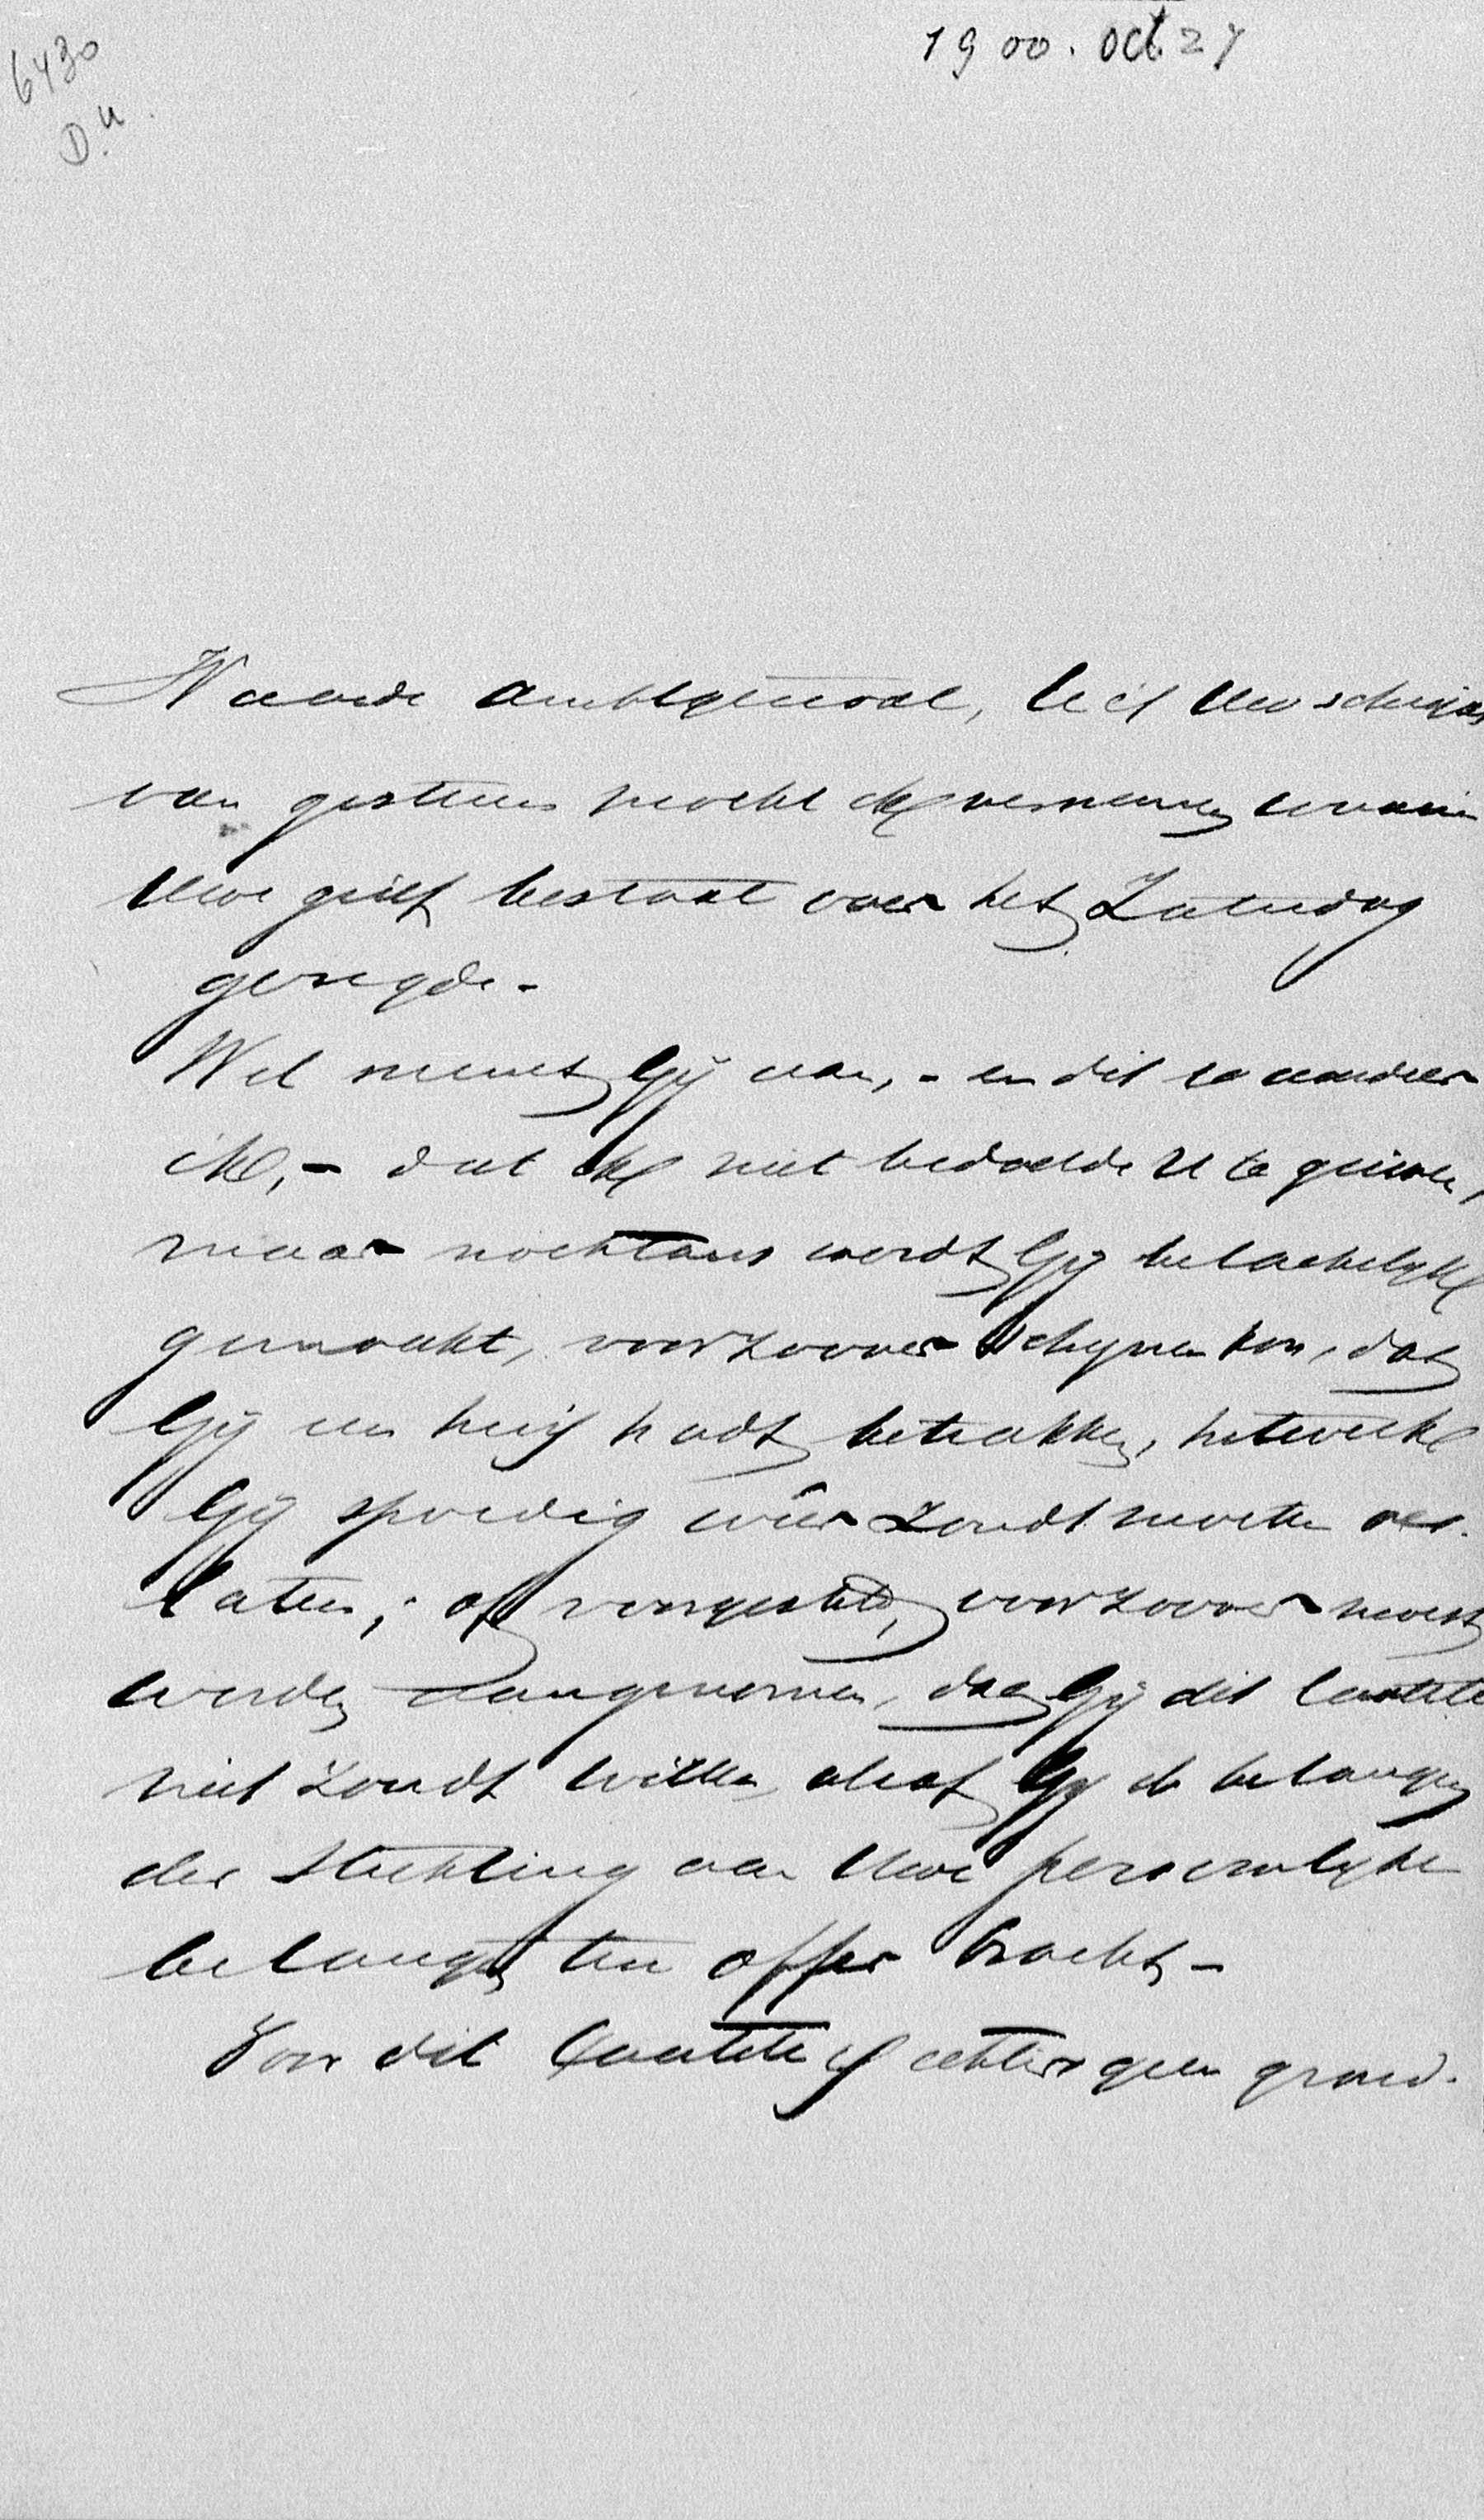 1900. Oct. 27
6430
D.4.
Waarde ambtgenoot, Uit Uw schrijven
van gisteren mocht ik vernemen waarin
Uwe grief bestaat over het Zaturdag
gezegde.
Wel neemt Gij aan, - en dit waardeer
ik, - dat ik niet bedoelde U te grieven,
maar nochtans werdt Gij belachelijk
gemaakt, voorzoover schijnen kon, dat
Gij een huis hadt betrokken, hetwelk
Gij spoedig wêer zoudt moeten ver-
laten; of voorgesteld, voorzoover moest
worden aangenomen, dat Gij dit laatste
niet zoudt willen, alsof Gij de belangen
der Stichting aan Uwe persoonlijke
belangen ten offer bracht -
Voor dit laatste is echter geen grond.